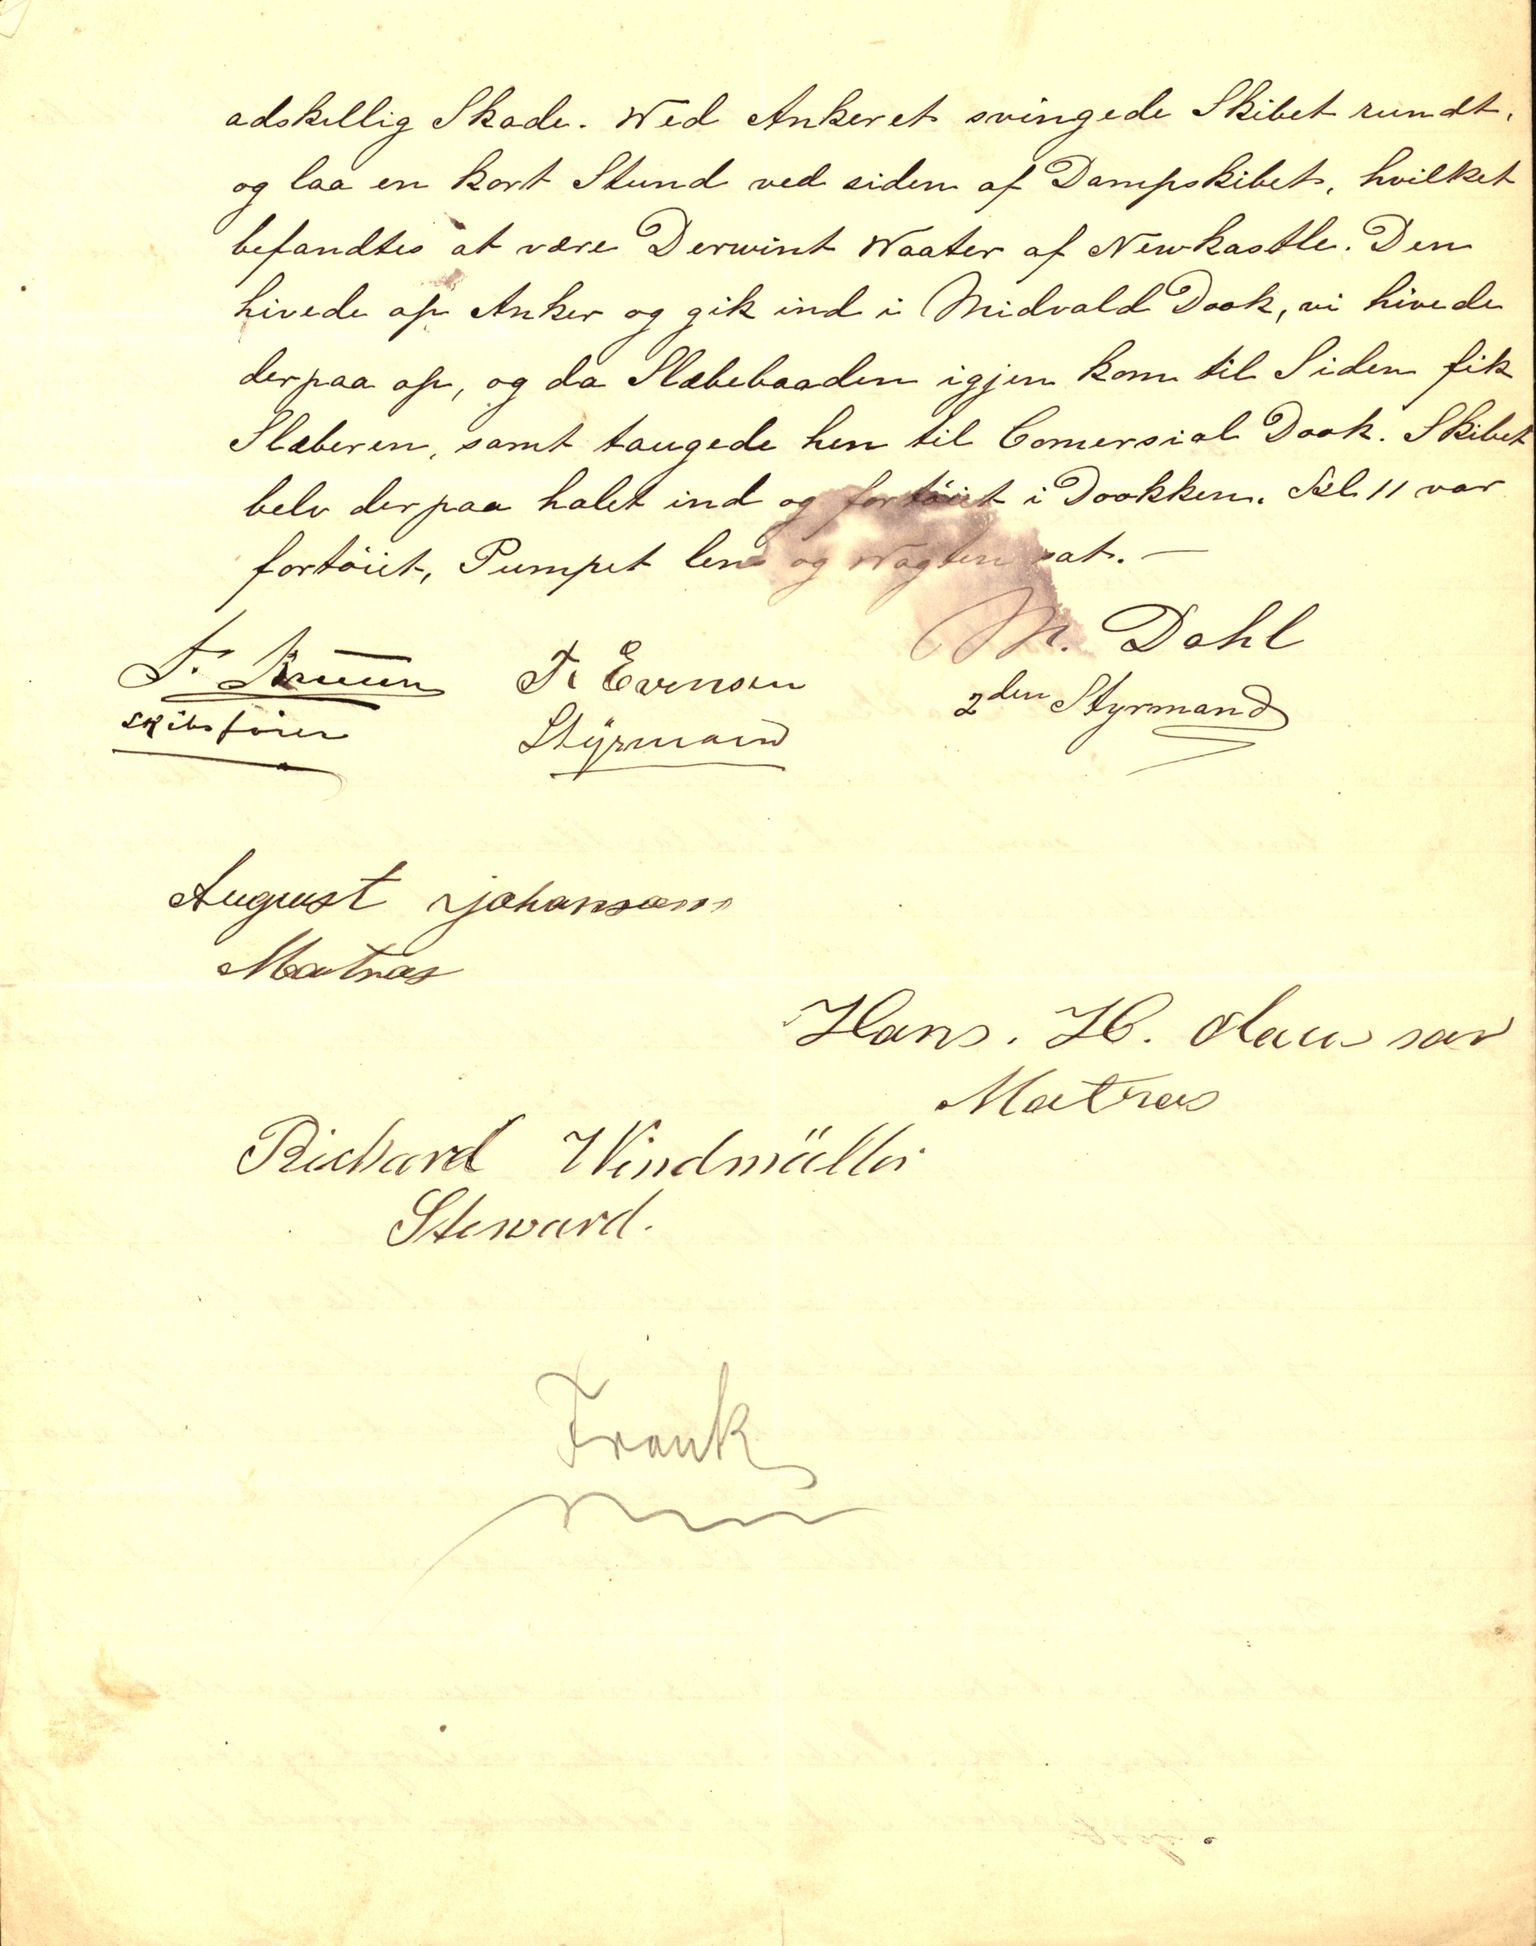 adskellig Skade. Wed Ankeret svingede Skibet rundt,
og laa en kort Stund ved siden af Dampskibet, hvilket
befandtes at være Derwint Waater af Newkastle. Den
hivede op Anker og gik ind i Midvald Dook, vi hivede
derpaa op, og da Slæbebaaden igjen kom til Siden fik
Slæberen, samt taugede hen til Comersial Dook. Skibet
belv derpaa halet ind og fortöiet i Dookken. Kl 11 var
fortöiet, Pumpet lens og Wagten sat. —
F. Bruun
Skibsförer
T. Evensen
Styrmand
M. Dahl
2den Styrmand
August Johansson
Matros
Hans. H.
Matros
Richard Windmüller
Steward.
Frank